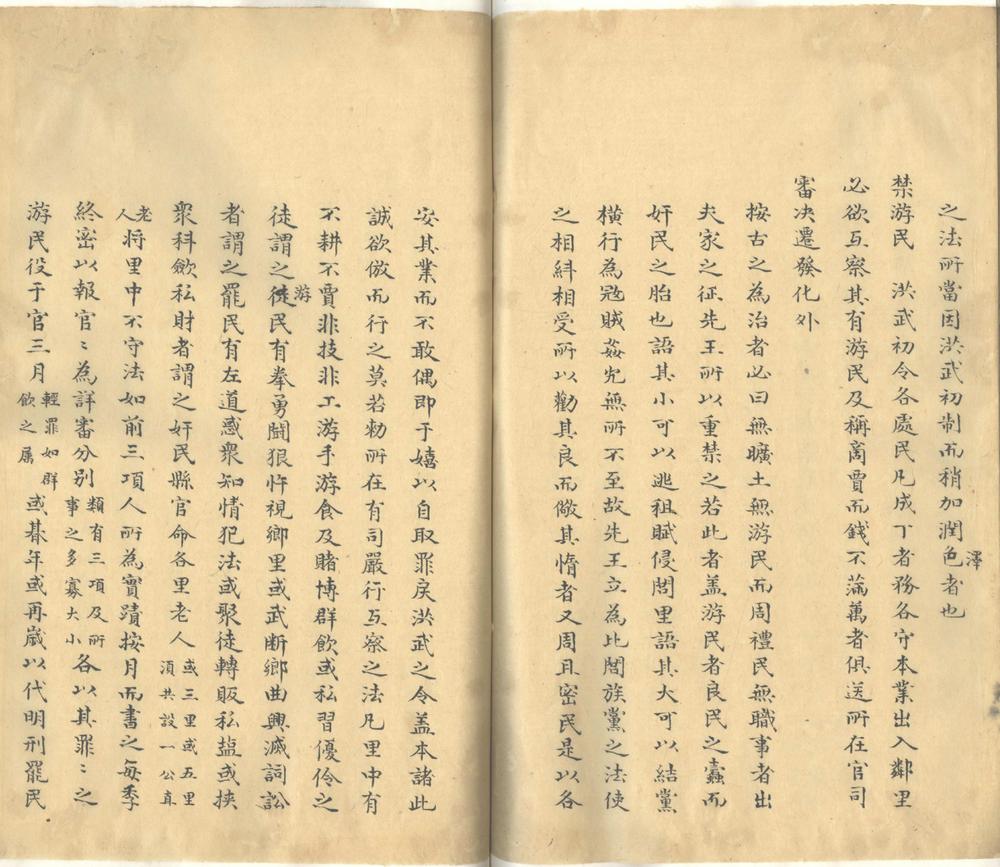 之法所當因洪武初制而稍加潤色者也
澤
禁游民　洪武初令各處民凡成丁者務各守本業出入鄰里
必欲互察其有游民及稱商賈而錢不滿萬者俱送所在官司
審决遷發化外
按古之為治者必曰無曠土無游民而周禮民無職事者出
夫家之征先王所以重禁之若此者盖游民者良民之蠹而
奸民之胎也語其小可以逃租賦侵閭里語其大可以結黨
橫行為宼賊姦宄無所不至故先王立為比閭族黨之法使
之相糾相受所以勸其良而儆其惰者又周且密民是以各
安其業而不敢偶即于嬉以自取罪戾洪武之令盖本諸此
誠欲倣而行之莫若勑所在有司嚴行互察之法凡里中有
不耕不賈非技非工游手游食及賭博群飲或私習優伶之
徒謂之徒民有拳勇鬪狠忤視鄉里或武断鄉曲興滅詞訟
游
者謂之罷民有左道惑衆知情犯法或聚徒轉販私塩或挾
衆科斂私財者謂之奸民縣官命各里老人或三里或五里須共設一公直
老人將里中不守法如前三項人所為實蹟按月而書之每季
終密以報官〻為詳審分別類有三項及所事之多寡大小各以其罪〻之
游民役于官三月輕罪如群飲之属或朞年或再歲以代明刑罷民